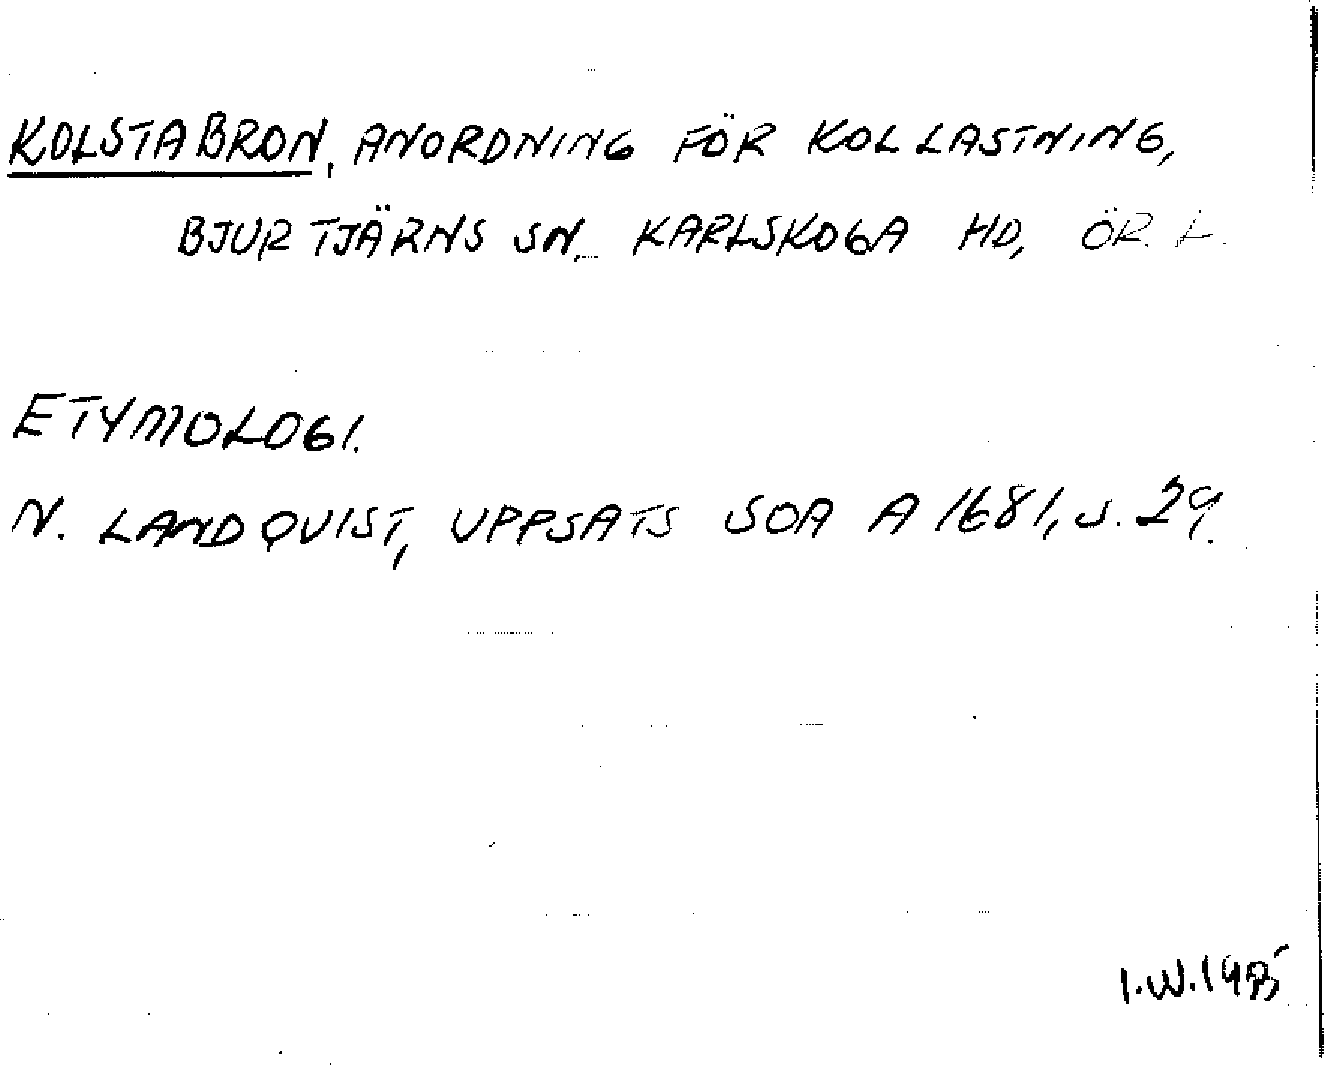 KOLSTABRON, ANORDNING FÖR KOLLASTNING,
BJURTJÄRNS SN. KARLSKOGA HD, ÖR. L.
ETYMOLOGI.
N. LANDQUIST, UPPSATS SOA A 1681, s. 29.
I.W.